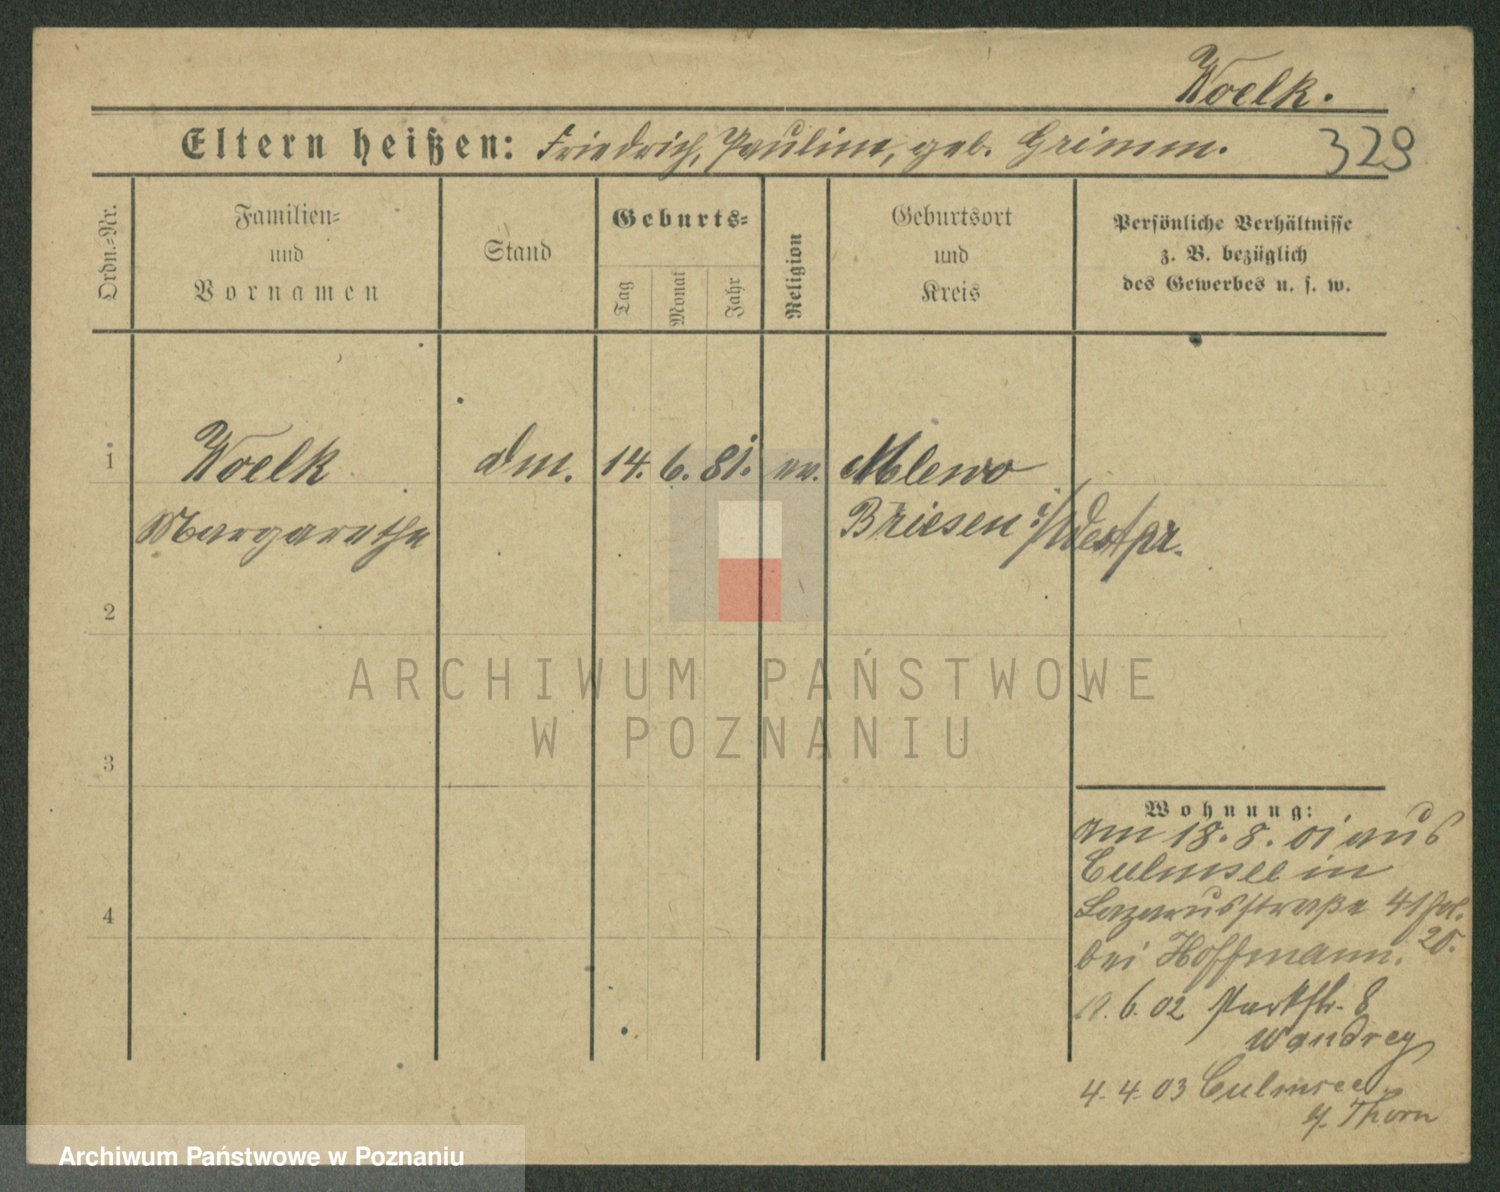 Woelk.
Eltern heißen: Friedrich, Pauline, geb. Grimm.
329
Ordn.-Nr.
Familien-
und
Vornamen
Stand
Geburts-
Tag
Monat
Jahr
Religion
Geburtsort
und
Kreis
Persönliche Verhältnisse
z. B. bezüglich
des Gewerbes u. s. w.
1
Woelk
14. 6. 81. ev. Mlewo
Margarethe
Briesen i/Westpr.
2
3
4
Wohnung:
am 18. 8. 01 aus
Culmsee in
Lazarusstraße 41
bei Hoffmann.
6. 02 Parkstr. 8
Wandrey
4. 4. 03 Culmsee
Thorn
ARCHIWUM PAŃSTWOWE
W POZNANIU
Archiwum Państwowe w Poznaniu